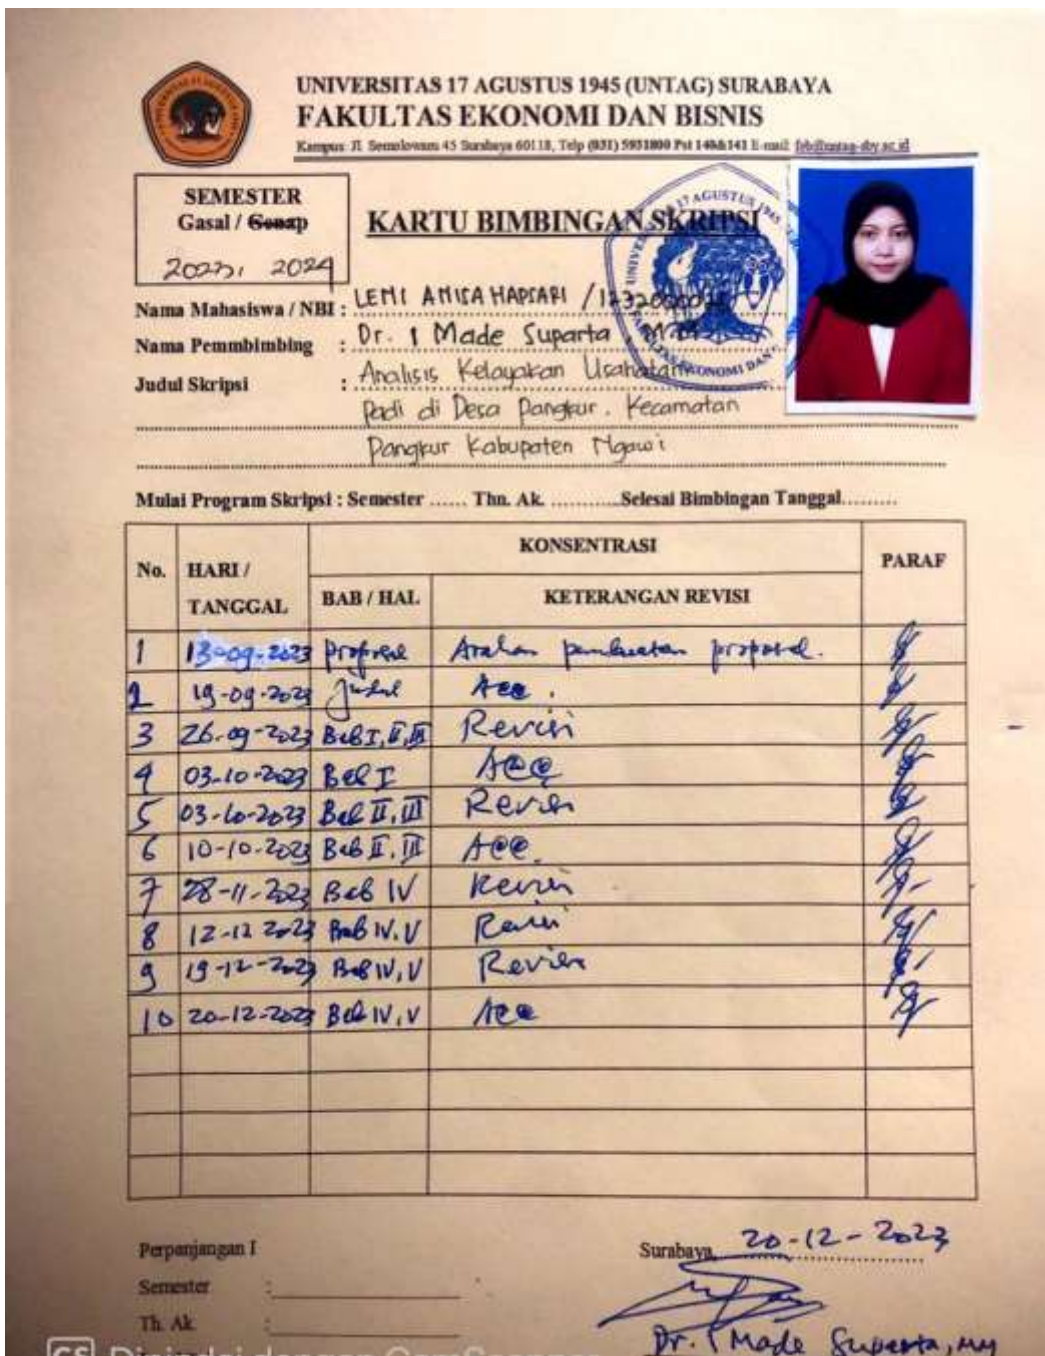 UNIVERSITAS 17 AGUSTUS 1945 (UNTAG) SURABAYA
FAKULTAS EKONOMI DAN BISNIS
Kampus: Jl. Semolowaru 45 Surabaya 60118, Telp (031) 5931800 Pst 140&141 E-mail: feb@untag-sby.ac.id
SEMESTER
Gasal / Genap
2023, 2024
KARTU BIMBINGAN SKRIPSI
Nama Mahasiswa / NBI :
Nama Pemmbimbing : Dr. I Made Suparta, MM
Judul Skripsi : Analisis Kelayakan Usahatani
Padi di Desa Pangkur, Kecamatan
Pangkur Kabupaten Ngawi
Mulai Program Skripsi : Semester ...... Thn. Ak. ...........Selesai Bimbingan Tanggal.........
No. HARI / TANGGAL KONSENTRASI PARAF
BAB / HAL KETERANGAN REVISI
1 13-09-2023 proposal Arahan pembuatan proposal.
2 19-09-2023 judul Acc.
3 26-09-2023 Bab I, II, III Revisi
4 03-10-2023 Bab I Acc
5 03-10-2023 Bab II, III Revisi
6 10-10-2023 Bab II, III Acc.
7 28-11-2023 Bab IV Revisi
8 12-12 2023 Bab IV, V Revisi
9 19-12-2023 Bab IV, V Revisi
10 20-12-2023 Bab IV, V Acc
Perpanjangan I
Surabaya, 20-12-2023
Semester :
Th. Ak :
Dr. I Made Suparta, MM
CS